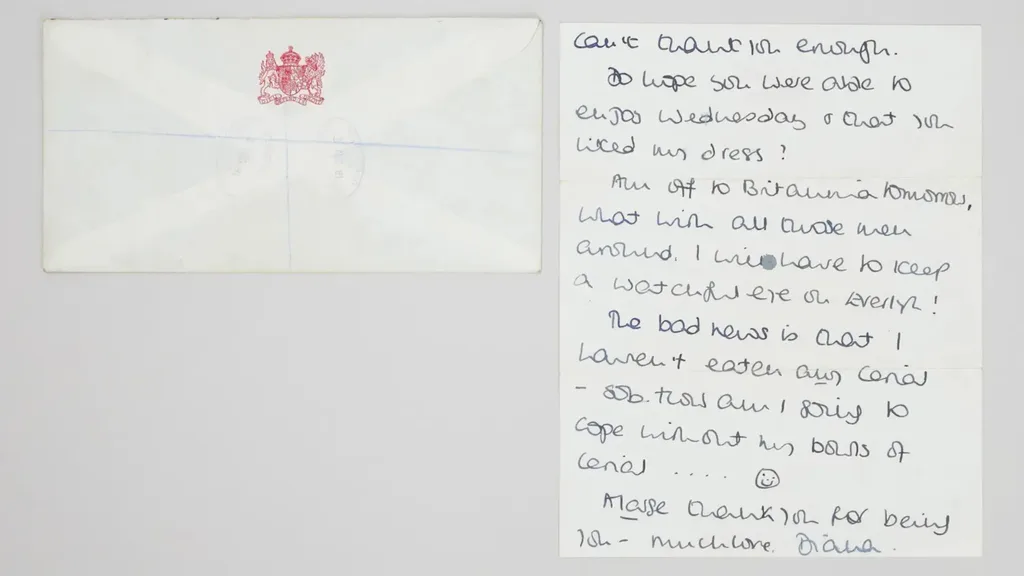 can't thank you enough.
Do hope you were able to
enjoy Wednesday & that you
liked my dress?
Am off to Britannia tomorrow,
what with all those men
around. I will have to keep
a watchful eye on Everlyn!
The bad news is that I
haven't eaten any cerial
- sob. How am I going to
cope without my bowls of
cerial .... ☺
A large thank you for being
you - much love, Diana.